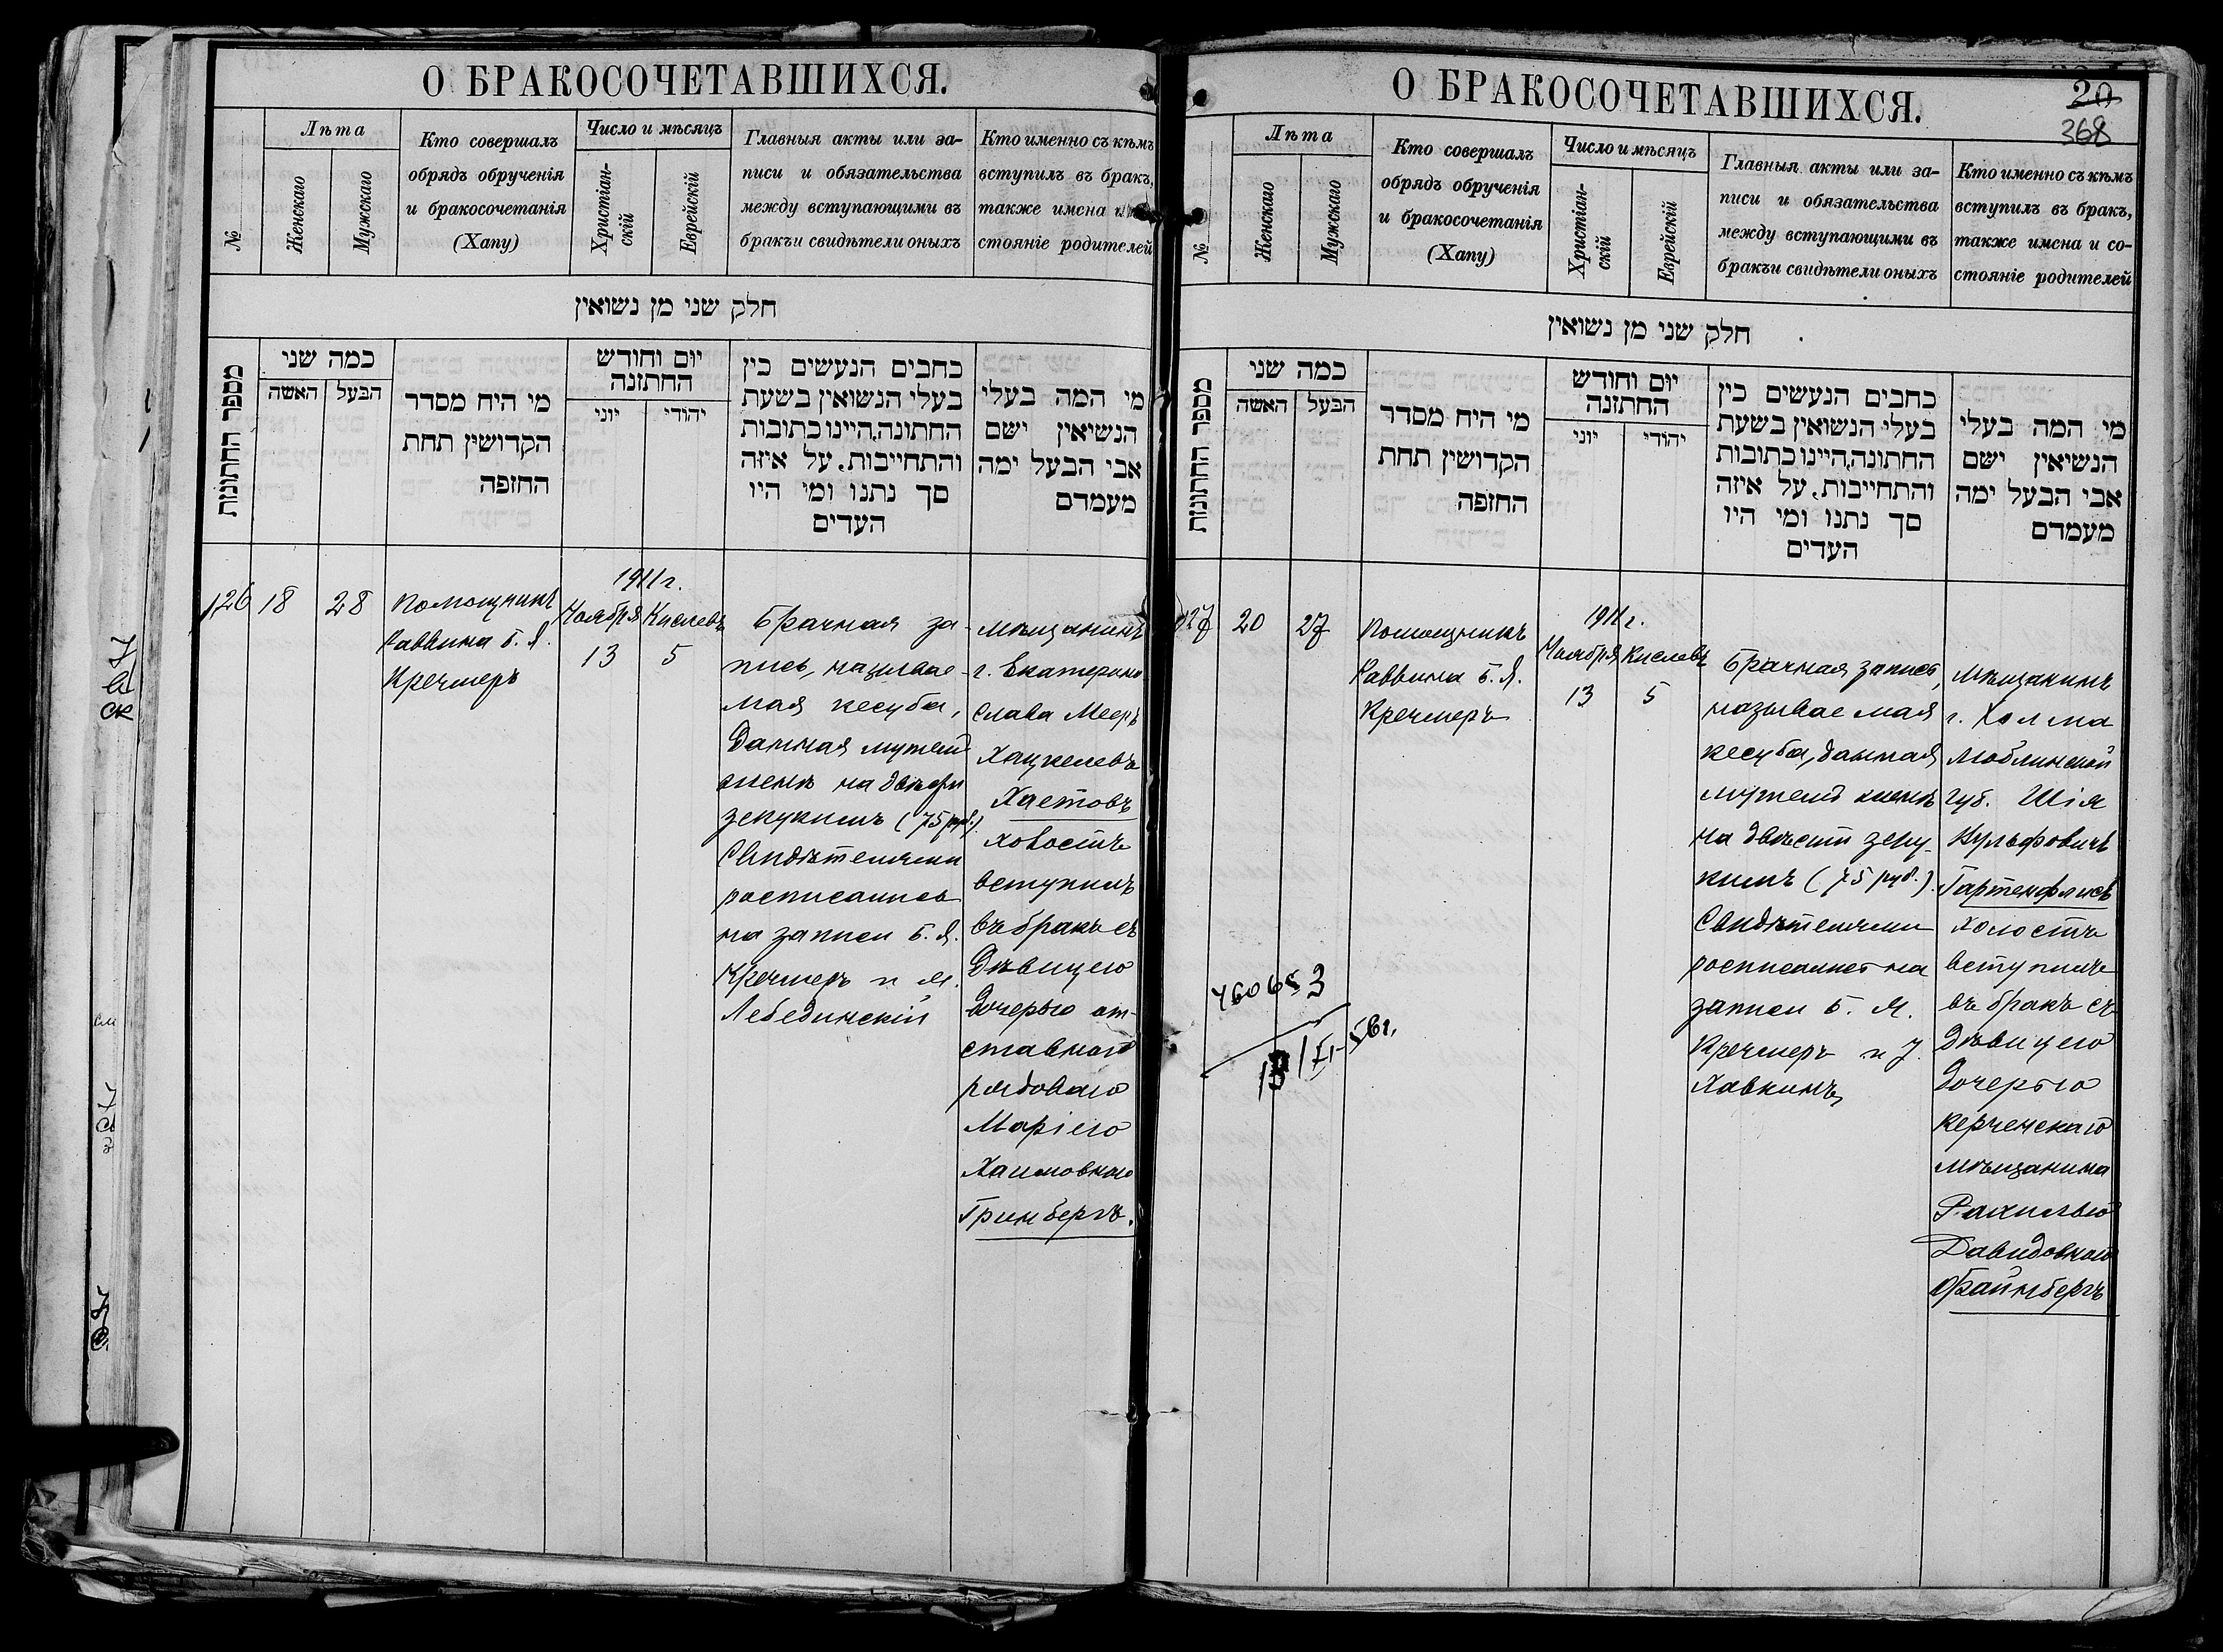 О БРАКОСОЧЕТАВШИХСЯ.
№
Лѣта
Женскаго
Мужскаго
Кто совершалъ
обрядъ обрученія
и бракосочетанія
(Хапу)
Число и мѣсяцъ
Христіан-
скій
Еврейскій
Главныя акты или за-
писи и обязательства
между вступающими въ
бракъи свидѣтели оныхъ
Кто именно съ кѣмъ
вступилъ въ бракъ,
также имена
стояніе родителей
חלק שני מן נשואין
מספר החתונות
כמה שני
האשה
הבעל
מי היח מסדר
הקדושין תחת
החזפה
יום וחודש
החתזנה
יוני
יהודי
כחבים הנעשים כין
בעלי הנשואין בשעת
החתונה,היינו כתובות
והתחייבות. על איזה
סך נתנו ומי היו
העדים
מי המה בעלי
הנשיאין ישם
אבי הבעל ימה
מעמדם
126
18
28
Помощникъ
Раввина Б. Я.
Кречмеръ
1911 г.
Ноября
13
Кислевъ
5
Брачная за-
пись, называе-
мая кесуба,
данная мужемъ
женѣ на двѣсти
зекукимъ (75 руб.)
Свидѣтелями
росписались
на записи Б. Я.
Кречмеръ и М.
Лебединскій
Мѣщанинъ
г. Екатерино
слава Мееръ
Хацкелевъ
Хаетовъ
холостъ
вступилъ
въ бракъ съ
дѣвицею
дочерью от-
ставного
рядоваго
Маріею
Хаимовною
Гринбергъ.
О БРАКОСОЧЕТАВШИХСЯ.
20
368
№
Лѣта
Женскаго
Мужскаго
Кто совершалъ
обрядъ обрученія
и бракосочетанія
(Хапу)
Число и мѣсяцъ
Христіан-
скій
Еврейскій
Главныя акты или за-
писи и обязательства
между вступающими въ
бракъи свидѣтели оныхъ
Кто именно съ кѣмъ
вступилъ въ бракъ,
также имена и со-
стояніе родителей
חלק שני מן נשואין
מספר החתונות
כמה שני
האשה
הבעל
מי היח מסדר
הקדושין תחת
החזפה
יום וחודש
החתזנה
יוני
יהודי
כחבים הנעשים כין
בעלי הנשואין בשעת
החתונה,היינו כתובות
והתחייבות. על איזה
סך נתנו ומי היו
העדים
מי המה בעלי
הנשיאין ישם
אבי הבעל ימה
מעמדם
127
20
27
Помощникъ
Раввина Б. Я.
Кречмеръ
1911 г.
Ноября
13
Кислевъ
5
Брачная запись,
называемая
кесуба, данная
мужемъ женѣ
на двѣсти зеку-
кимъ (75 руб.).
Свидѣтелями
росписались на
записи Б. Я.
Кречмеръ и
Хавкинъ
Мѣщанинъ
г. Холма
Люблинской
губ. Шія
Вульфовичъ
Гартенфлисъ
холостъ
вступилъ
въ бракъ съ
дѣвицею
дочерью
керченскаго
мѣщанина
Рахилью
Давидовною
Файнбергъ